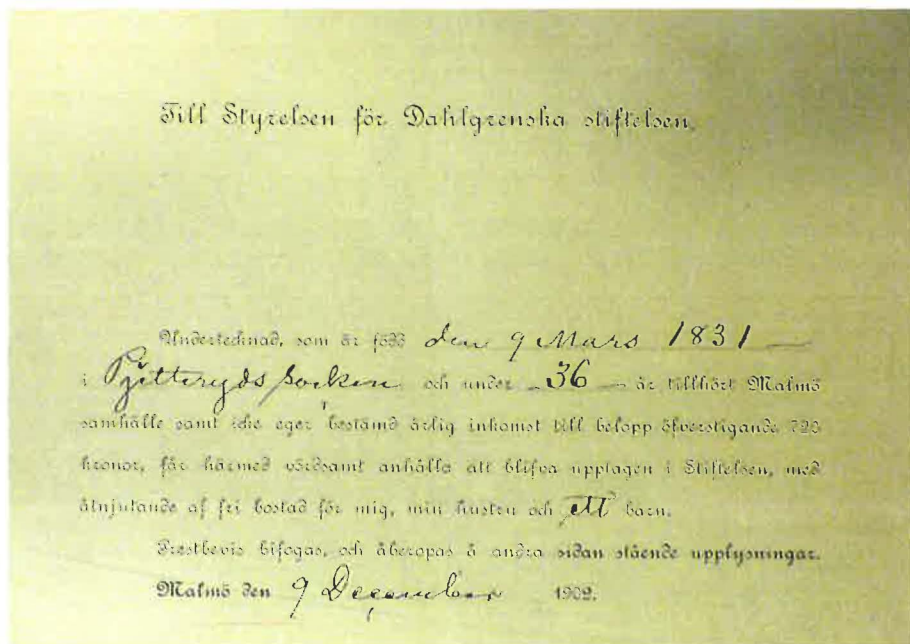 Till Styrelsen för Dahlgrenska stiftelsen.
Undertecknad, som är född den 9 Mars 1831
i Pjetteryds socken och under 36 år tillhört Malmö
samhälle samt icke eger bestämd årlig inkomst till belopp öfverstigande 720
kronor, får härmed vördsamt anhålla att blifva upptagen i Stiftelsen, med
åtnjutande af fri bostad för mig, min hustru och ett barn.
Prestbevis bifogas, och åberopas å andra sidan stående upplysningar.
Malmö den 9 December 1902.